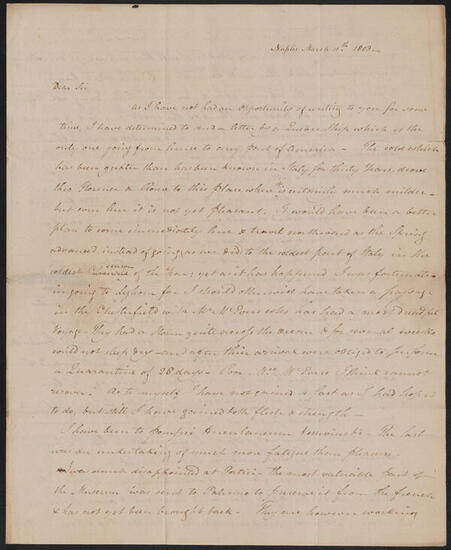 Naples March 11th 1803 -
Dear Sir
as I have not had an opportunity of writing to you for some
time, I have determined to send a letter by a ship which is the
only one going from hence to any part of America - The cold which
has been greater than has been known in Italy for thirty Years, drove
this Florence & Rome to this place where it is extremely much milder -
but even here it is not yet pleasant. It would have been a better
plan to come immediately here & travel northward as the Spring
advanced, instead of going as we did to the coldest part of Italy in the
coldest season of the Year; yet as it has happened I was fortunate
in going to Leghorn for I should otherwise have taken a passage
in the Chesterfield with Mr McEuen who has had a most dreadful
Voyage - They had a storm quite across the ocean & for several weeks
could not keep dry - and after their arrival were obliged to perform
a Quarantine of 28 days - Poor Mr McEuen I think cannot
recover. As to myself I have not gained so fast as I had hoped
to do, but still I have gained both flesh & strength -
I have been to Pompeii Herculaneum Vesuvius &c - The last
was an undertaking of much more fatigue than pleasure -
I was much disappointed at Portici - the most valuable part of
the Museum was sent to Palermo to preserve it from the french
& has not yet been brought back - They are however working